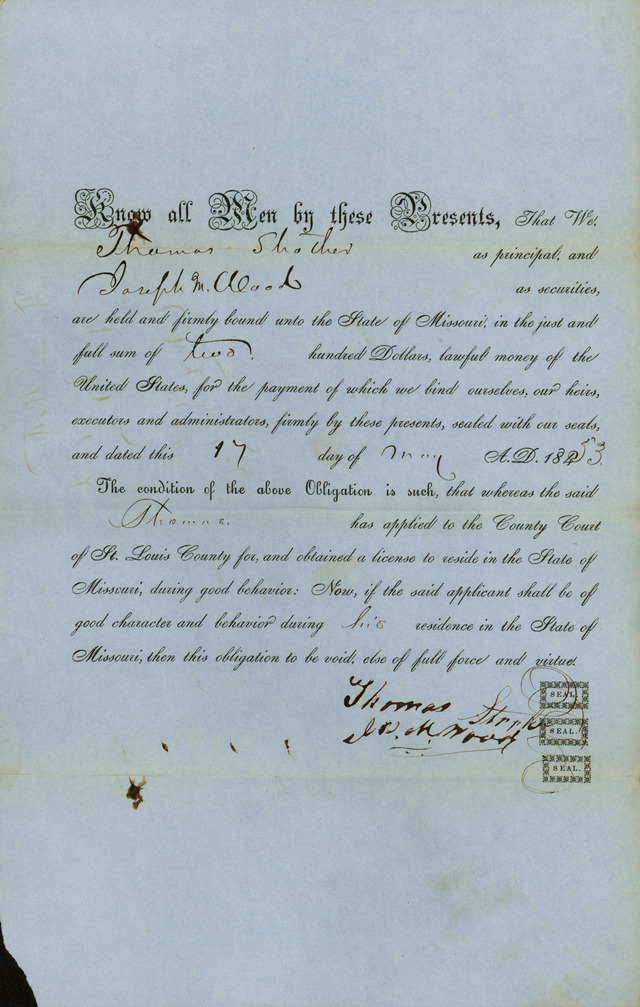 Know all Men by these Presents, That We,
Thomas Strother as principal, and
Joseph M. Wood as securities,
are held and firmly bound unto the State of Missouri, in the just and
full sum of two hundred Dollars, lawful money of the
United States, for the payment of which we bind ourselves, our heirs,
executors and administrators, firmly by these presents, sealed with our seals,
and dated this 17 day of May A.D. 1853.
The condition of the above Obligation is such, that whereas the said
Thomas has applied to the County Court
of St. Louis County for, and obtained a license to reside in the State of
Missouri, during good behavior: Now, if the said applicant shall be of
good character and behavior during his residence in the State of
Missouri, then this obligation to be void, else of full force and virtue.
Thomas SEAL.
Jos. M. Wood SEAL.
SEAL.